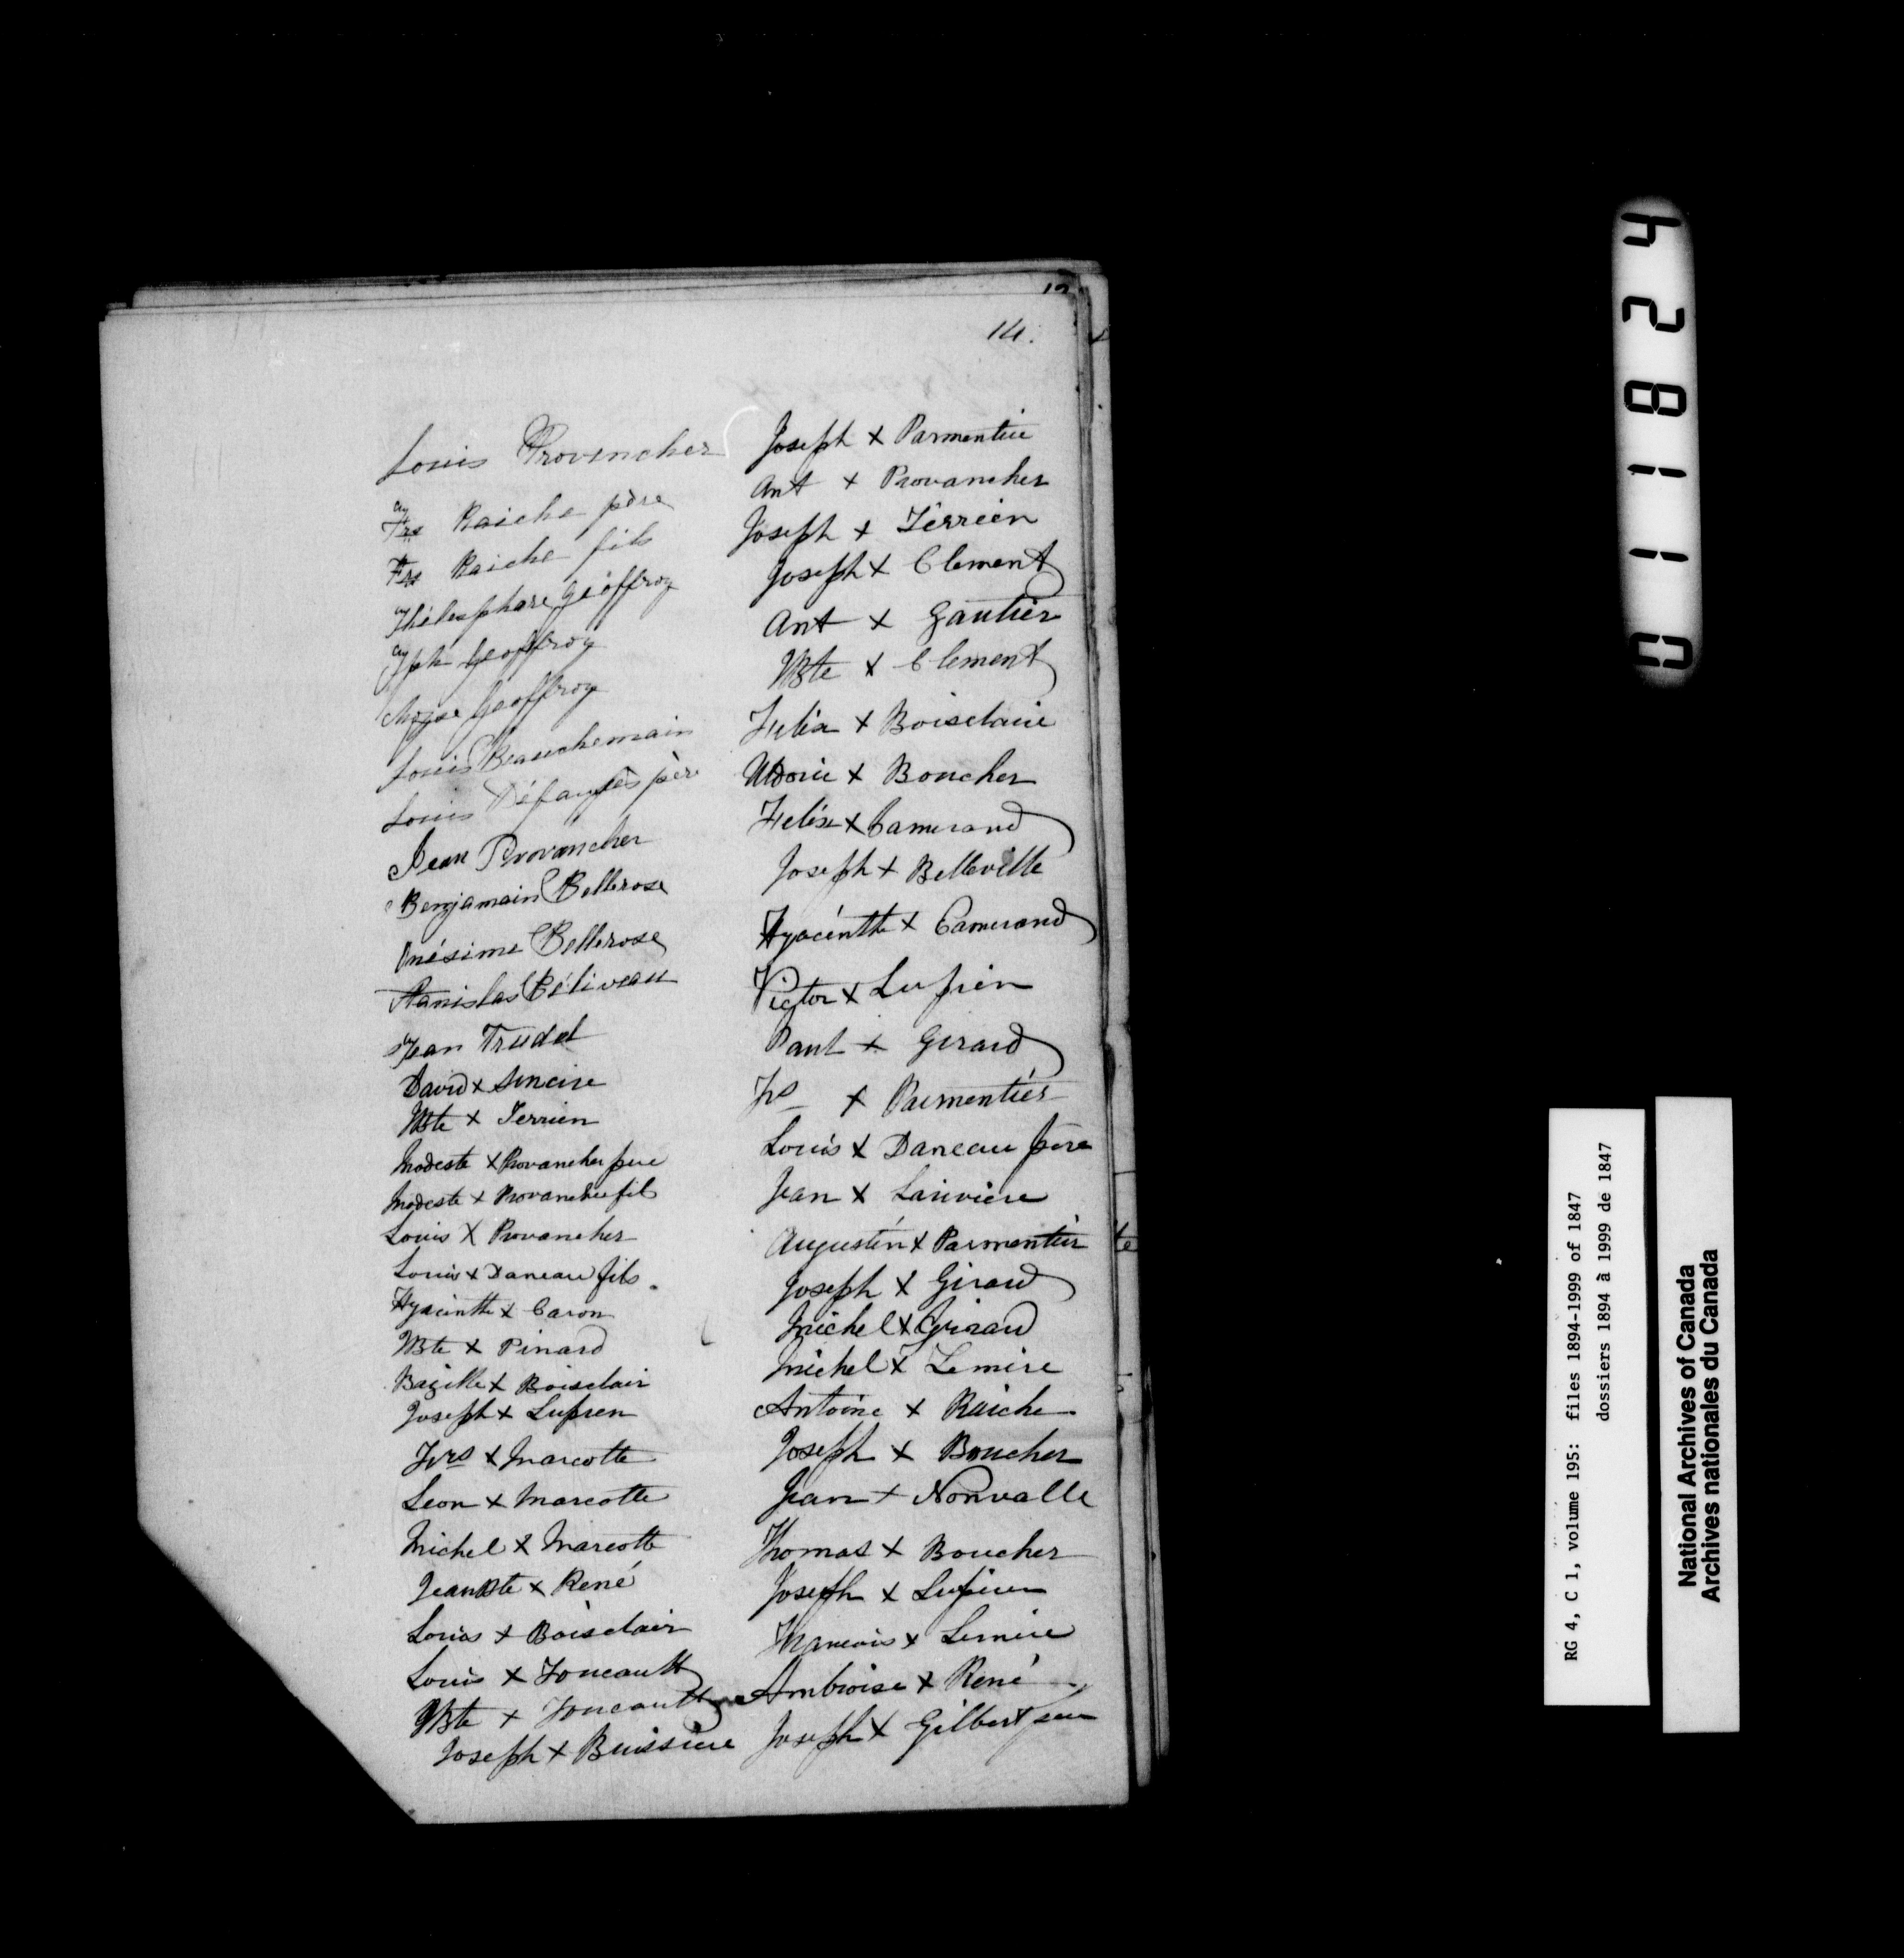 14.
Louis Provencher
Frs Raiche père
Frs Raiche fils
Thélesphore Geoffroy
Jph Geoffroy
Moyse Geoffroy
Louis Beauchemain
Louis père
Jean Provancher
Benjamain Bellerose
Onésime Bellerose
Stanislas Béliveau
Jean Trudel
David x Sincire
JBte x Terrien
Modeste x Provancher père
Modeste x Provancher fils
Louis X Provancher
Louis x Daneau fils.
Hyacinthe x Caron
JBte x Pinard
Bazille x Boisclair
Joseph x Lupien
Frs x Marcotte
Leon x Marcotte
Michel x Marcotte
JeanBte x René
Louis x Boisclair
Louis x Foucault
JBte x Foucault
Joseph x Buissiere
Joseph x Parmentier
Ant x Provancher
Joseph x Térrien
Joseph x Clement
Ant x Gautier
JBte x Clement
Felix x Boisclair
x Boucher
Felix x Camerand
Joseph x Belleville
Hyacinthe x Camerand
Victor x Lupien
Paul x Girard
Frs x Parmentier
Louis x Daneau père
Jean x Lariviere
Augustin x Parmentier
Joseph x Girard
Michel x Girard
Michel x Lemire
Antoine x Raiche
Joseph x Boucher
Jean x Norvalle
Thomas x Boucher
Joseph x Lupien
Francois x Lemire
Ambroise x René
Joseph x Gilbert père
011824
RG 4, C 1, volume 195: files 1894-1999 of 1847
dossiers 1894 à 1999 de 1847
National Archives of Canada
Archives nationales du Canada